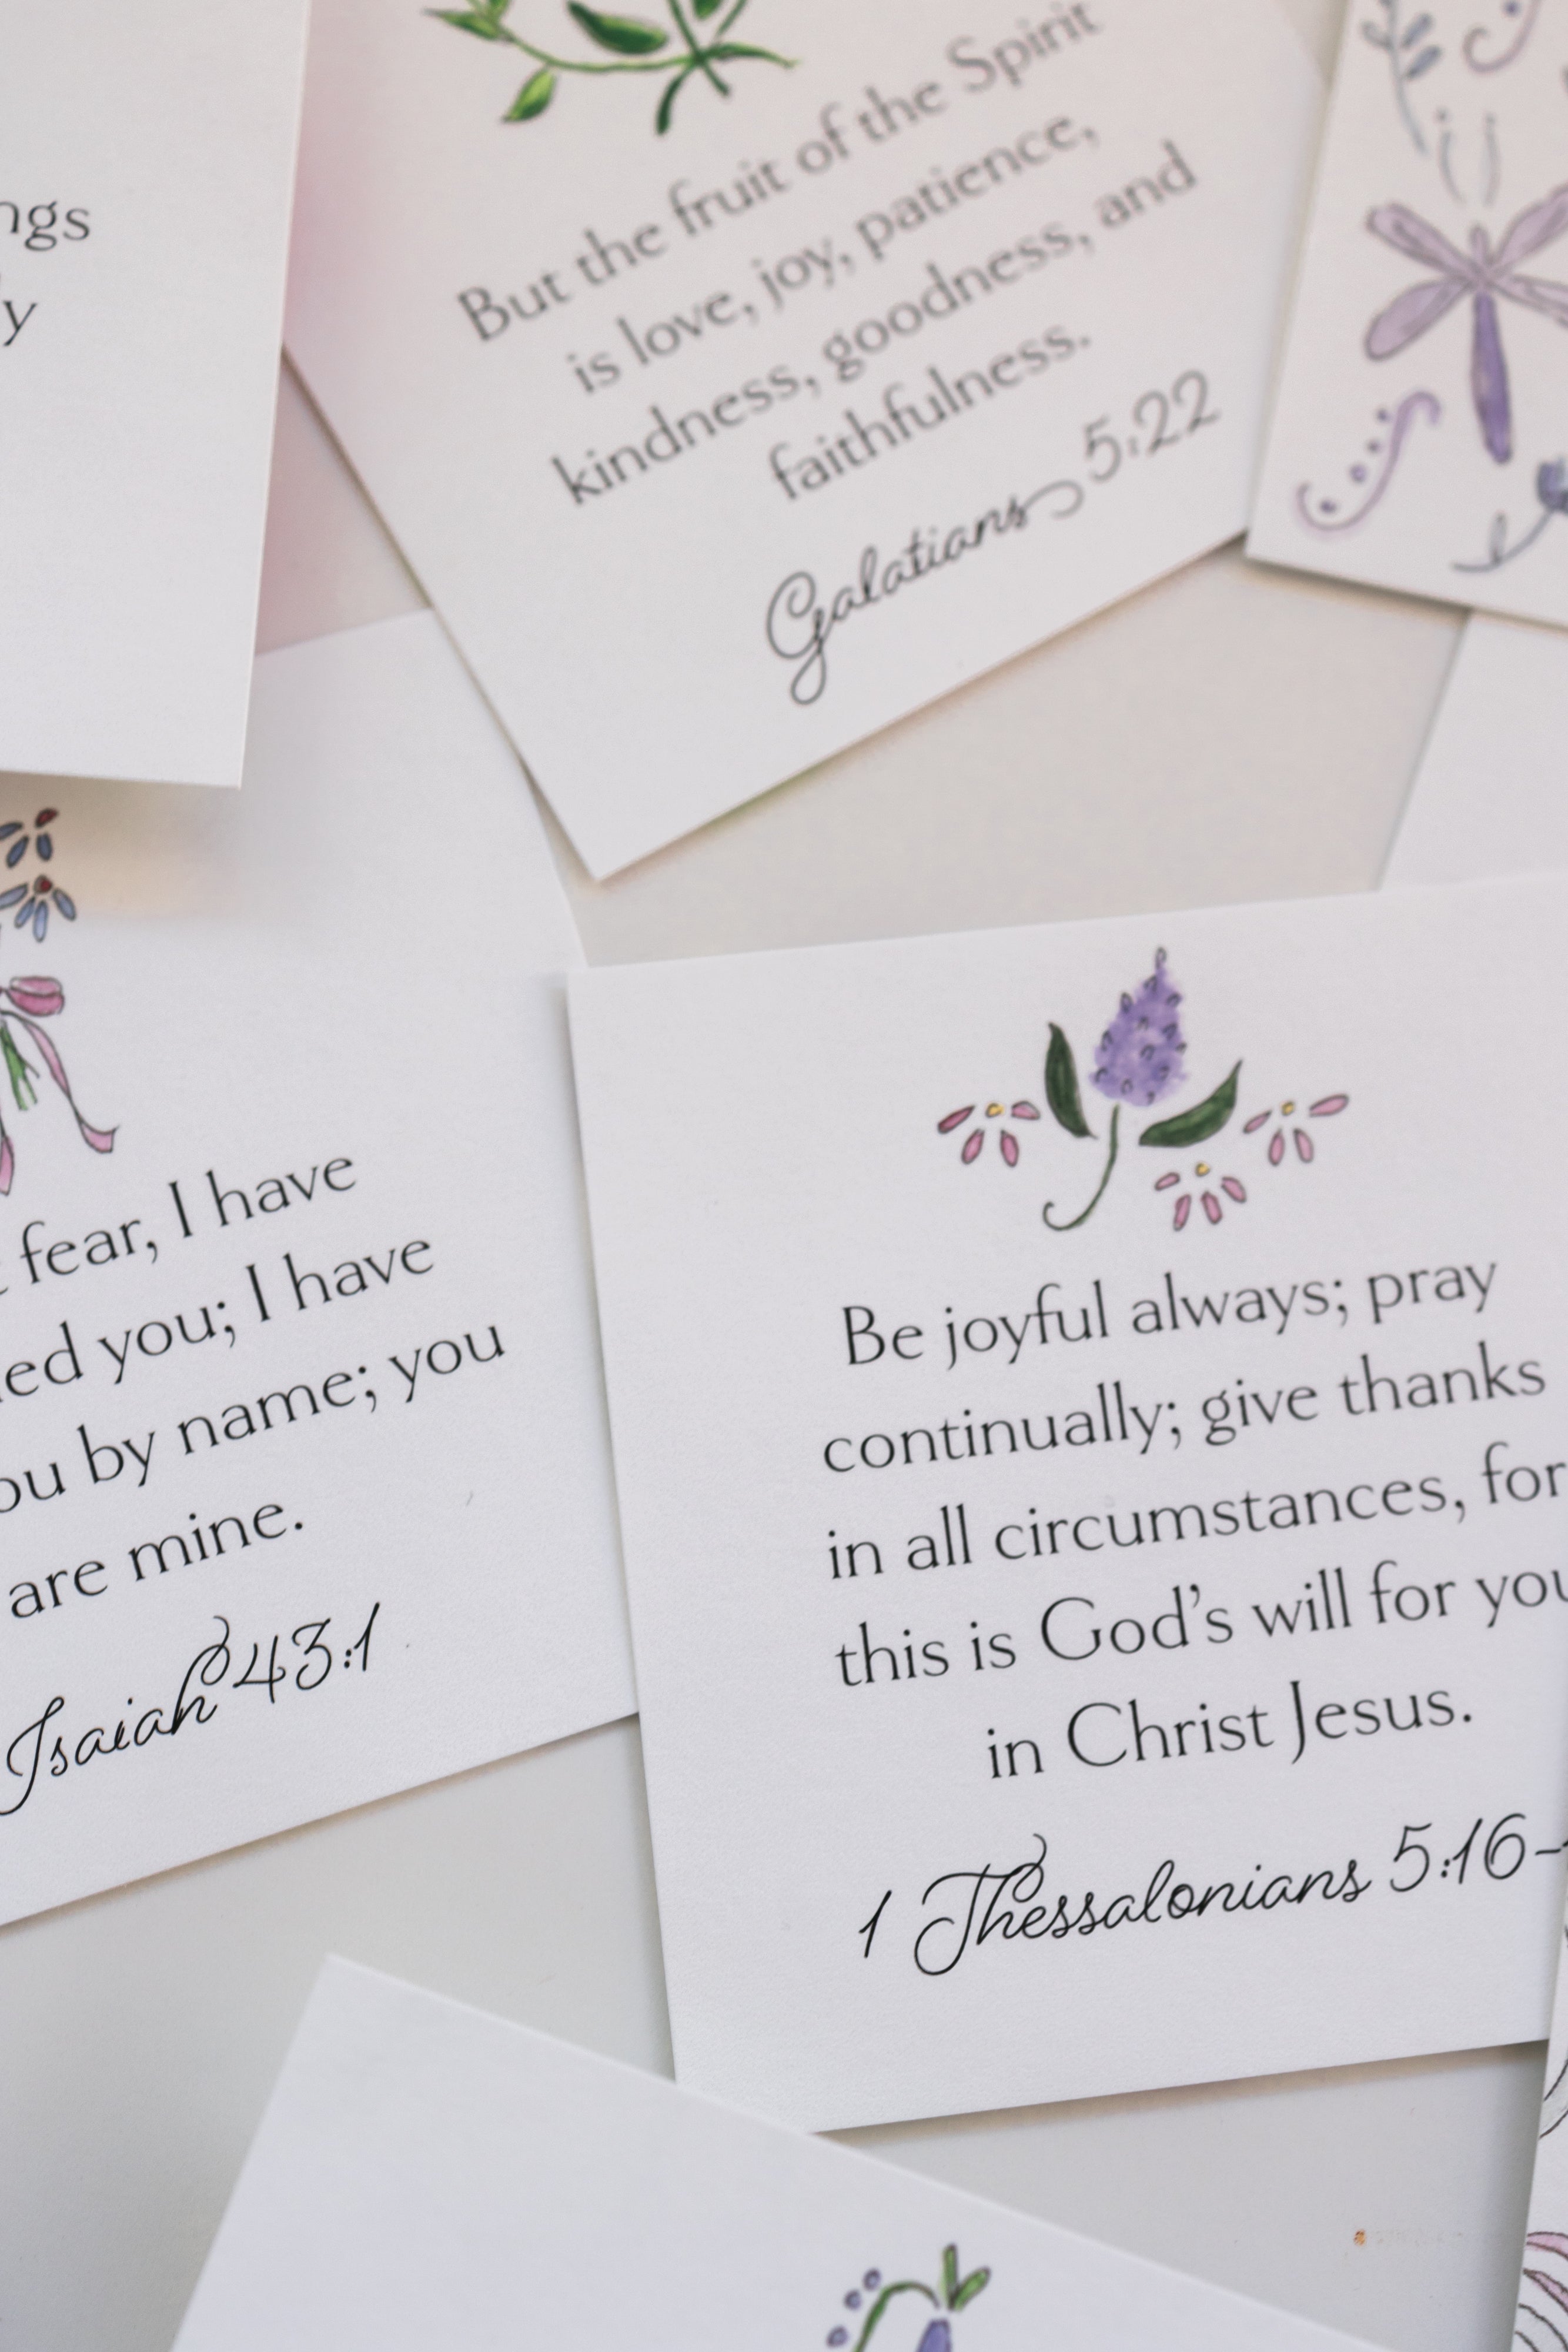 But the fruit of the Spirit
is love, joy, patience,
kindness, goodness, and
faithfulness.
Galatians 5:22
fear, I have
you; I have
by name; you
are mine.
Isaiah 43:1
Be joyful always; pray
continually; give thanks
in all circumstances, for
this is God's will for you
in Christ Jesus.
1 Thessalonians 5:16-